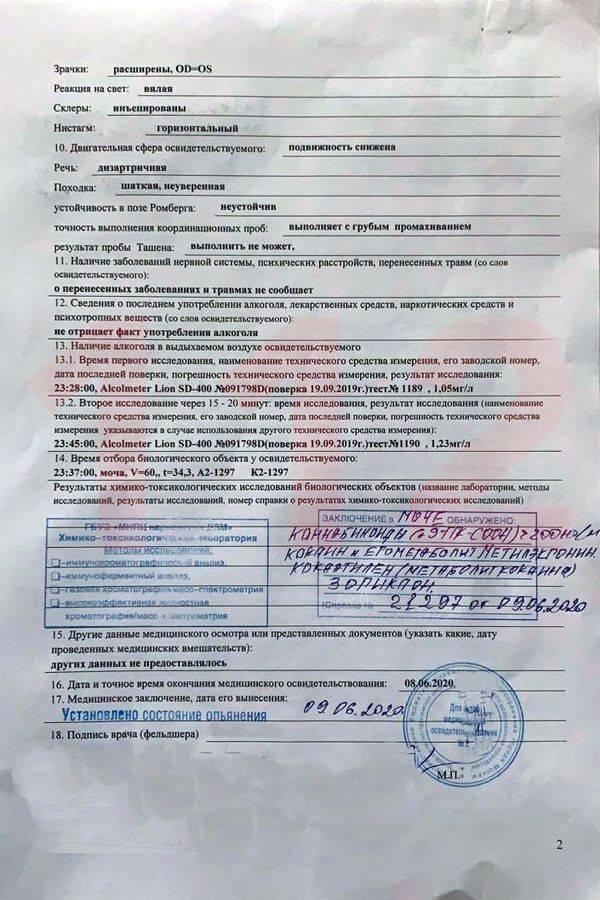 Зрачки: расширены, OD=OS
Реакция на свет: вялая
Склеры: инъецированы
Нистагм: горизонтальный
10. Двигательная сфера освидетельствуемого: подвижность снижена
Речь: дизартричная
Походка: шаткая, неуверенная
устойчивость в позе Ромберга: неустойчив
точность выполнения координационных проб: выполняет с грубым промахиванием
результат пробы Ташена: выполнить не может,
11. Наличие заболеваний нервной системы, психических расстройств, перенесенных травм (со слов
освидетельствуемого):
о перенесенных заболеваниях и травмах не сообщает
12. Сведения о последнем употреблении алкоголя, лекарственных средств, наркотических средств и
психотропных веществ (со слов освидетельствуемого):
не отрицает факт употребления алкоголя
13. Наличие алкоголя в выдыхаемом воздухе освидетельствуемого
13.1. Время первого исследования, наименование технического средства измерения, его заводской номер,
дата последней поверки, погрешность технического средства измерения, результат исследования:
23:28:00, Alcolmeter Lion SD-400 №091798D(поверка 19.09.2019г.)тест№ 1189 , 1,05мг/л
13.2. Второе исследование через 15 - 20 минут: время исследования, результат исследования (наименование
технического средства измерения, его заводской номер, дата последней поверки, погрешность технического средства
измерения указываются в случае использования другого технического средства измерения)
23:45:00, Alcolmeter Lion SD-400 №091798D(поверка 19.09.2019г.)тест№1190 , 1,23мг/л
14. Время отбора биологического объекта у освидетельствуемого:
23:37:00, моча, V=60,, t=34,3, А2-1297 К2-1297
Результаты химико-токсикологических исследований биологических объектов (название лаборатории, методы
исследований, результаты исследований, номер справки о результатах химико-токсикологических исследований)
ГБУЗ «МНПЦ наркологии ДЗМ»
Химико-токсикологическая лаборатория
Методы исследований:
–иммунохроматографический анализ,
–иммуноферментный анализ,
–газовая хроматография/масс-спектрометрия
–высокоэффективная жидкостная
хроматография/масс-спектрометрия
ЗАКЛЮЧЕНИЕ В МОЧЕ ОБНАРУЖЕНО:
КАННАБИНОИДЫ
КОКАИН и ЕГО МЕТАБОЛИТ
КОКАЭТИЛЕН (МЕТАБОЛИТ КОКАИНА)
ЗОПИКЛОН
(Справка № 21297 от 09.06.2020
15. Другие данные медицинского осмотра или представленных документов (указать какие, дату
проведенных медицинских вмешательств):
других данных не предоставлялось
16. Дата и точное время окончания медицинского освидетельствования: 08.06.2020
17. Медицинское заключение, дата его вынесения: 09.06.2020
Установлено состояние опьянения
18. Подпись врача (фельдшера)
М.П.
2